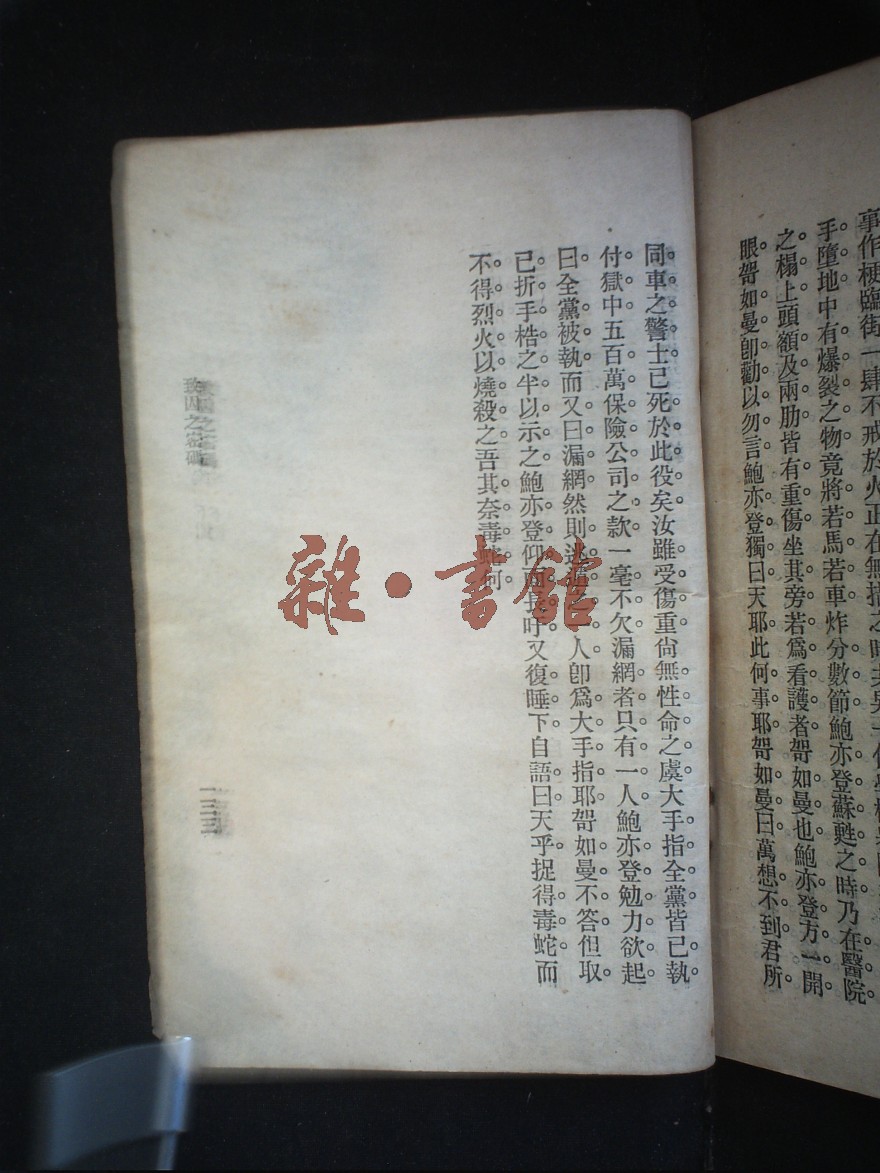 事作梗臨街一肆不戒於火正在無措之時
手墮地中有爆裂之物竟將若馬若車炸分數節鮑亦登蘇甦之時乃在醫院
之榻上頭額及兩肋皆有重傷坐其旁若為看護者哿如曼也鮑亦登方一開
眼哿如曼卽勸以勿言鮑亦登獨曰天耶此何事耶哿如曼曰萬想不到君所
同車之警士已死於此役矣汝雖受傷重尙無性命之虞大手指全黨皆已執
付獄中五百萬保險公司之款一毫不欠漏網者只有一人鮑亦登勉力欲起
曰全黨被執而又曰漏網然則 一人卽爲大手指耶哿如曼不答但取
已折手梏之半以示之鮑亦登仰面長吁又復睡下自語曰天乎捉得毒蛇而
不得烈火以燒殺之吾其奈毒蛇何
雜·書館
囚之
一三三